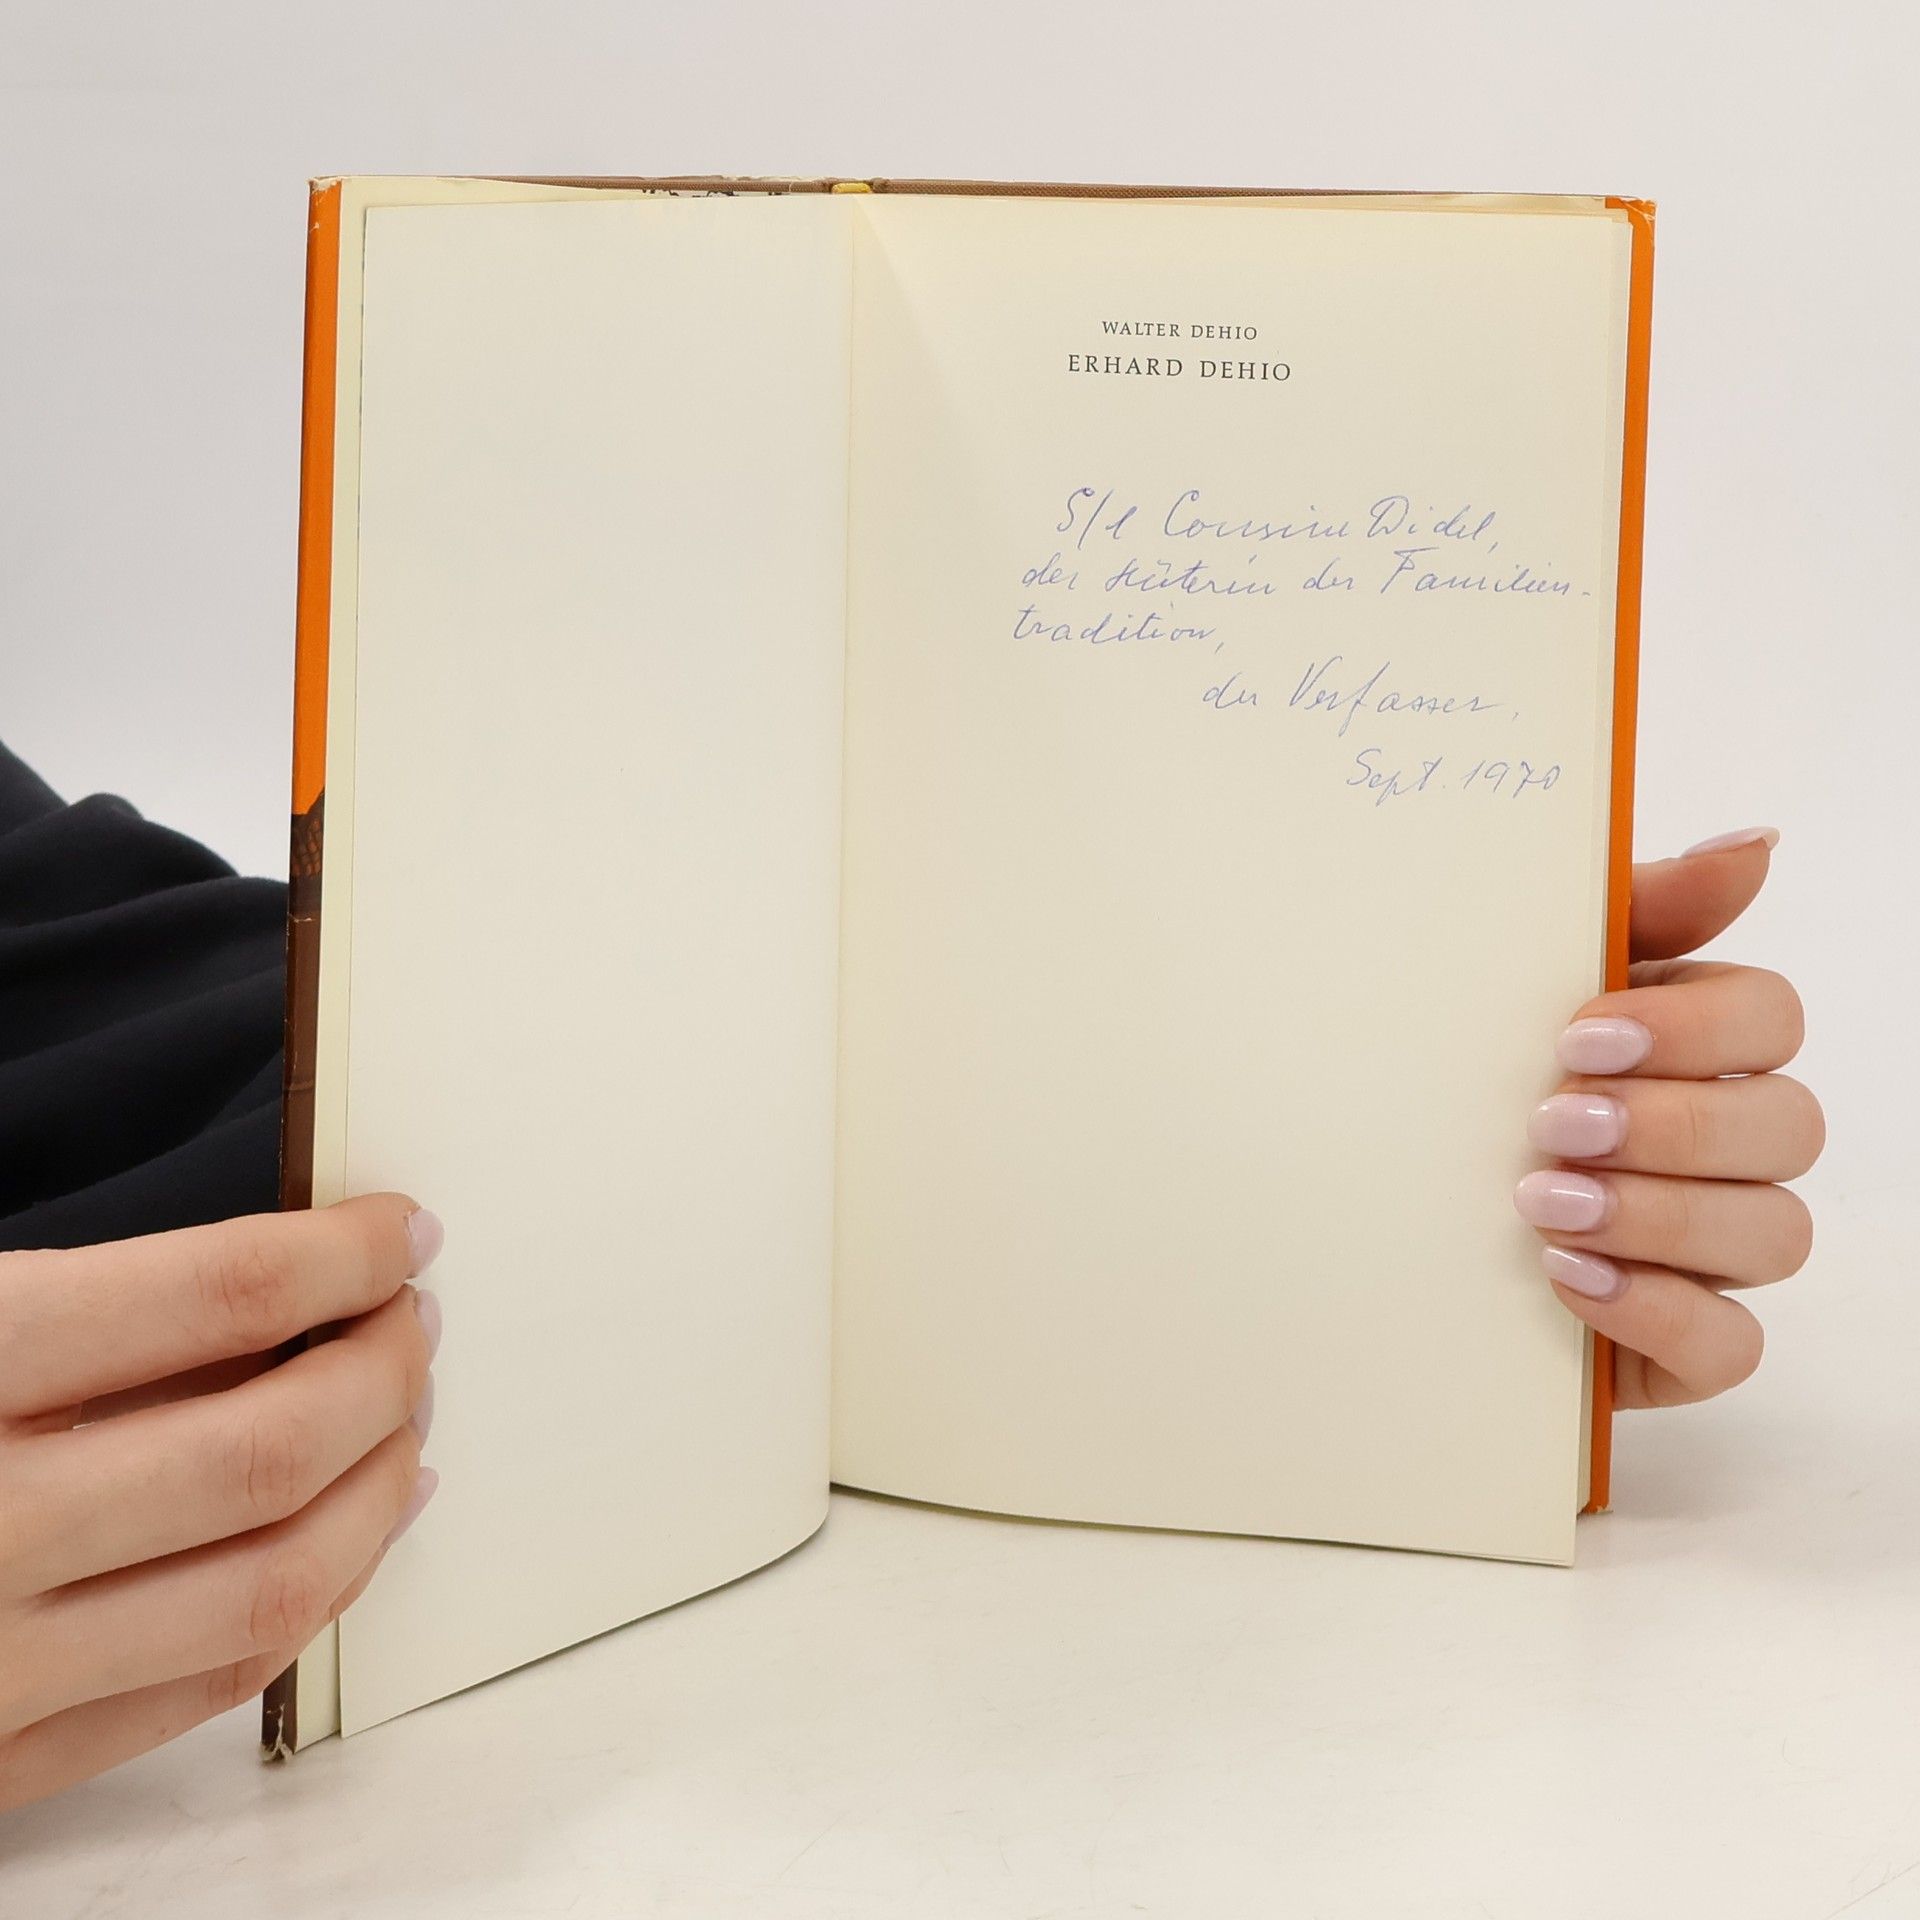 WALTER DEHIO
ERHARD DEHIO
S/l Cousine Didel,
der Hüterin der Familien-
tradition,
der Verfasser,
Sept. 1970